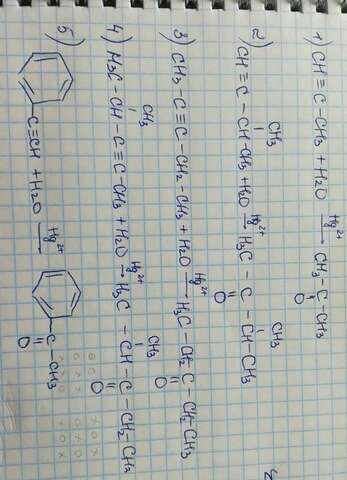 1) CH≡C-CH3 + H2O Hg2+→ CH3-C-CH3
O
2) CH≡C-CH-CH3 + H2O Hg2+→ H3C-C-CH-CH3
CH3 O CH3
3) CH3-C≡C-CH2-CH3 + H2O Hg2+→ H3C-CH2-C-CH2-CH3
O
4) H3C-CH-C≡C-CH3 + H2O Hg2+→ H3C-CH-C-CH2-CH3
CH3 CH3 O
5) C≡CH + H2O Hg2+→ C-CH3
O